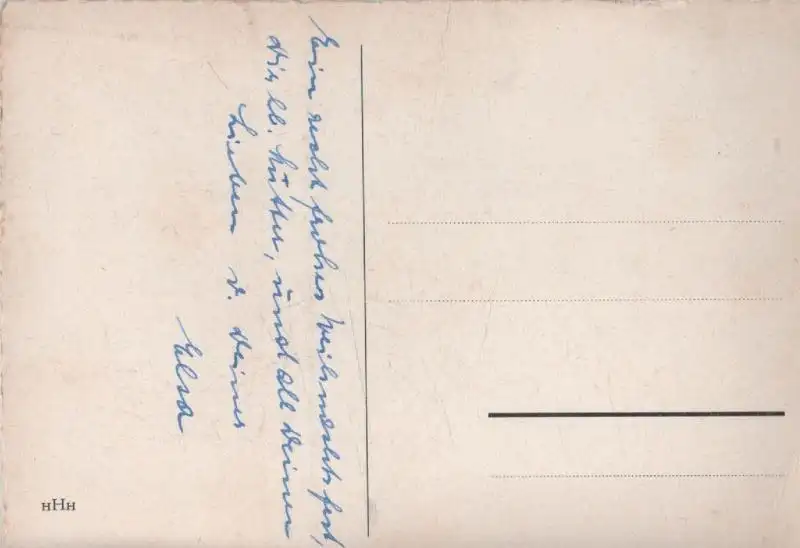 Ein recht frohes Weihnachtsfest,
Dir, lb. Mutter, und all Deinen
Lieben v. Deiner
Elsa
HHH